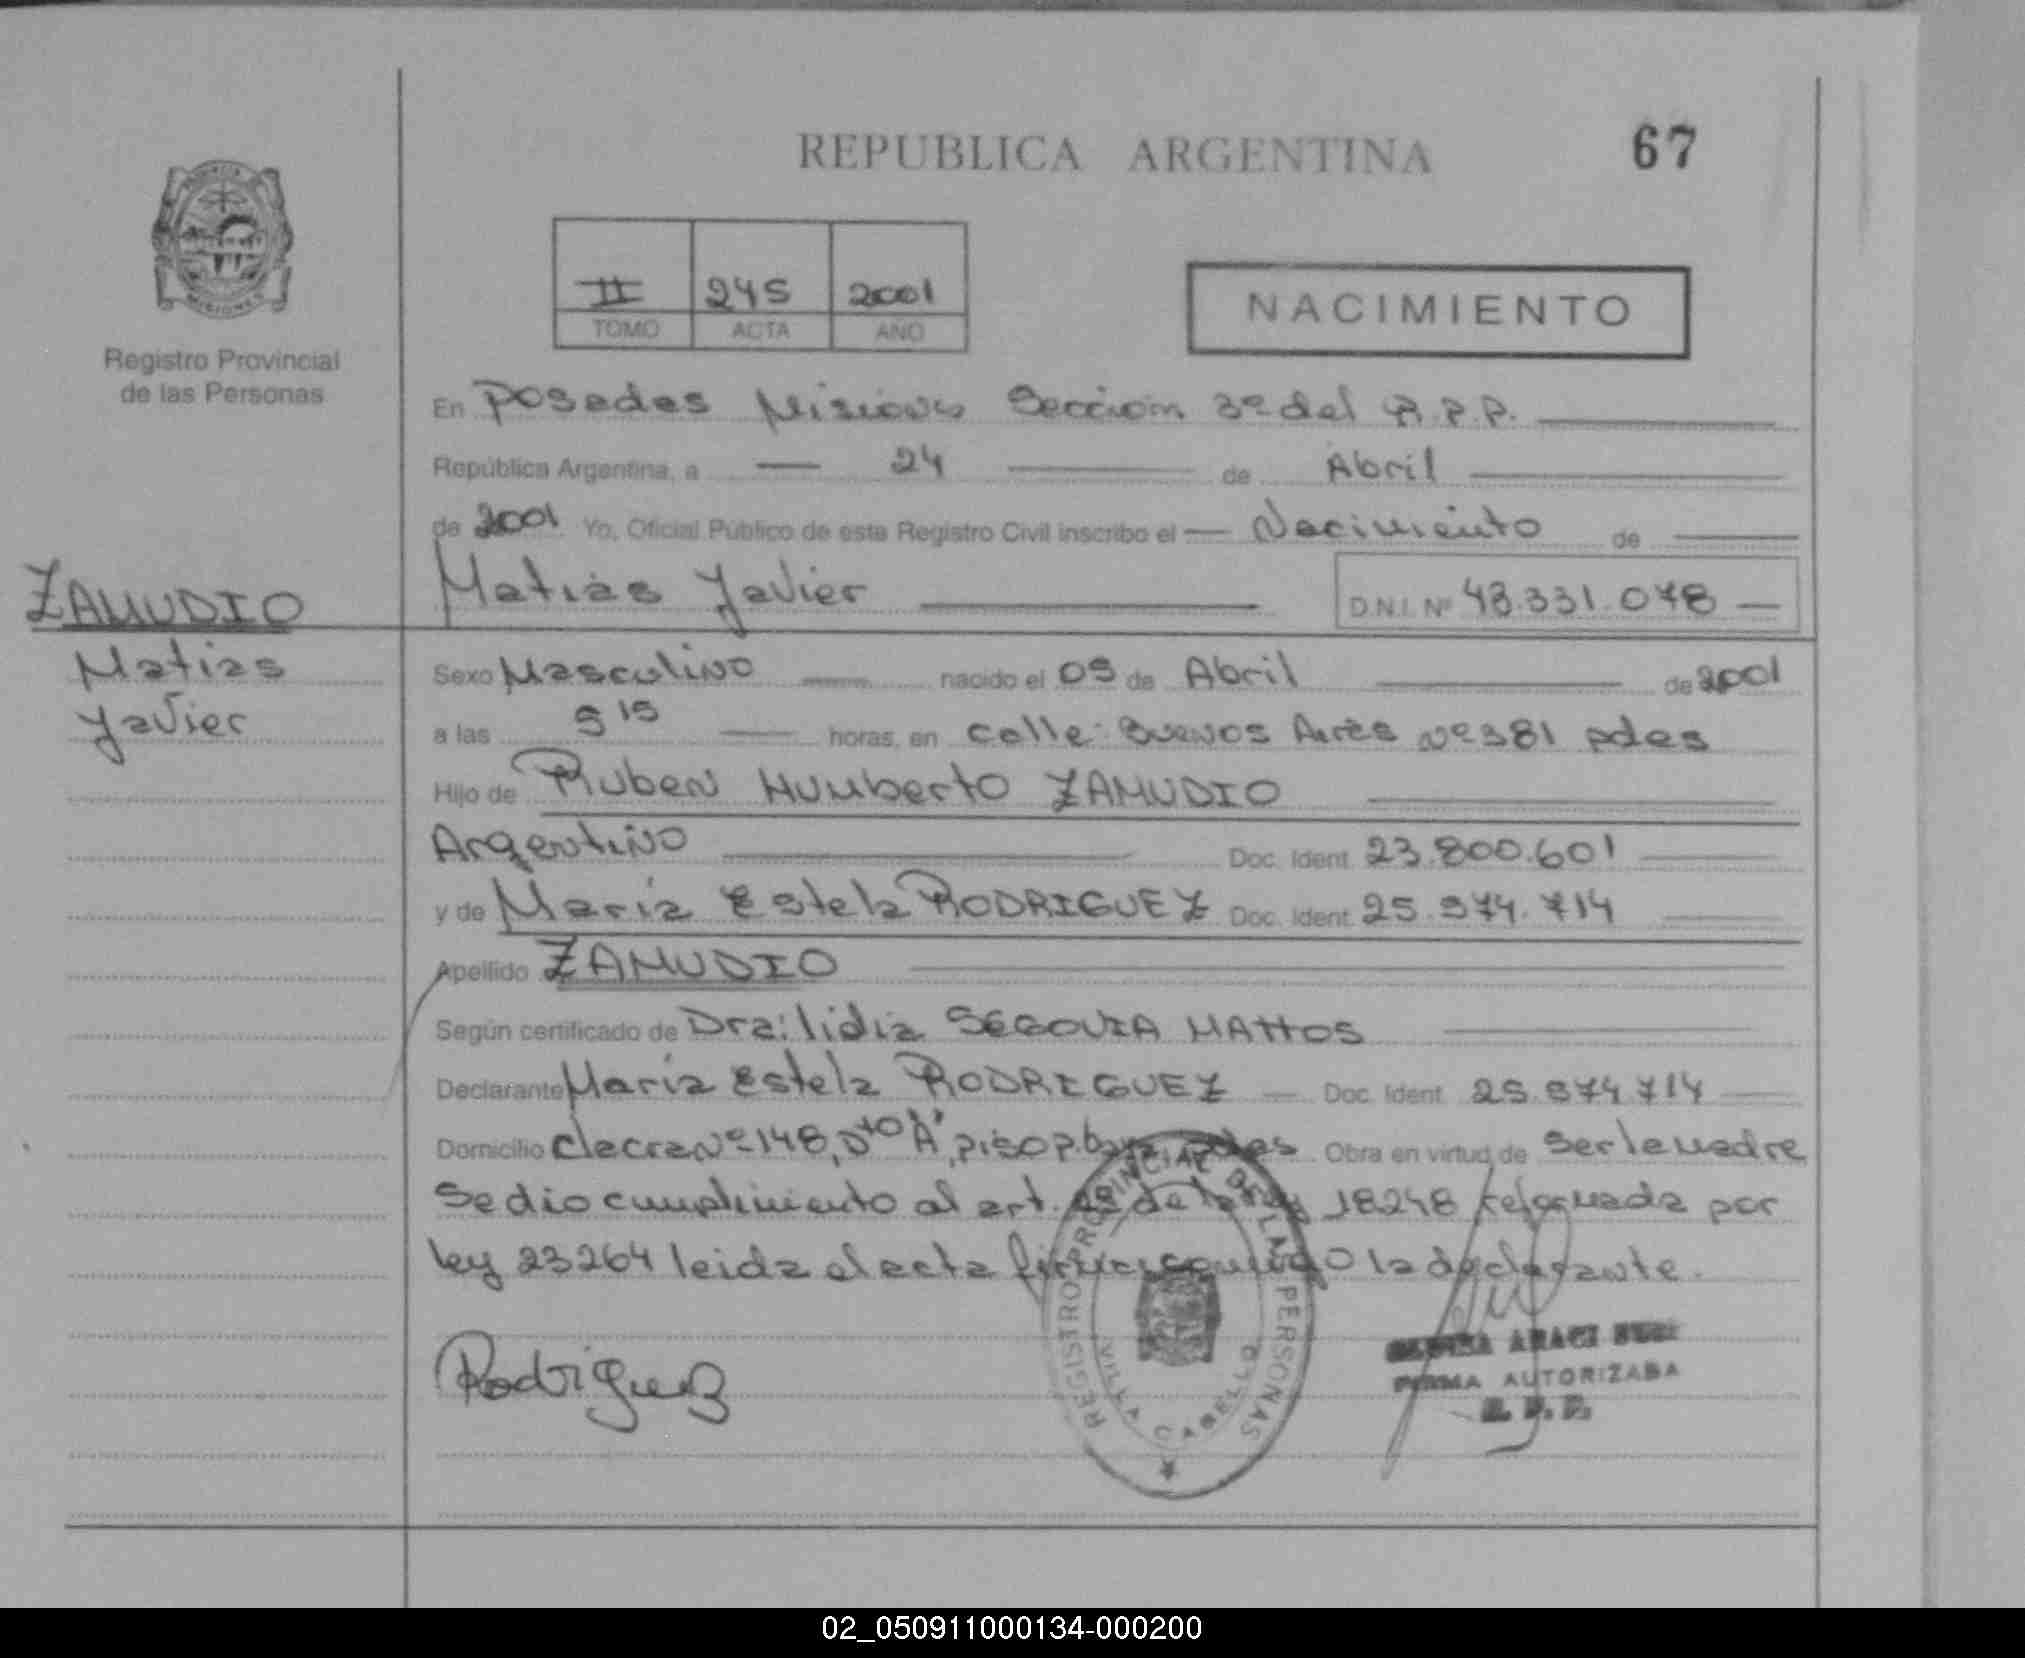 REPUBLICA ARGENTINA
67
II 245 2001
TOMO ACTA AÑO
NACIMIENTO
Registro Provincial
de las Personas
En Posadas Misiones Seccion 3º del R.P.P.
República Argentina, a 24 de Abril
de 2001 Yo, Oficial Público de este Registro Civil inscribo el Nacimiento de
ZAMUDIO
Matias Javier D.N.I. Nº 43.331.078
Matias
Javier
Sexo Masculino nacido el 09 de Abril de 2001
a las 9 15 horas, en calle: Buenos Aires Nº 381 pdas
Hijo de Ruben Humberto ZAMUDIO
Argentino Doc. Ident. 23.800.601
y de Maria Estela RODRIGUEZ Doc. Ident. 25.974.714
Apellido ZAMUDIO
Según certificado de Dra: lidia SEGOVIA MATTOS
Declarante Maria Estela RODRIGUEZ Doc. Ident. 25.974.714
Domicilio chacra Nº 148, Dto "A", piso p. pdas Obra en virtud de ser la madre
Se dio cumplimiento al art. de la ley 18248 reformada por
ley 23264 leida el acta firma conmigo la declarante.
Rodriguez
REGISTRO PROVINCIAL DE LAS PERSONAS
VILLA CABELLO
ARACI
FIRMA AUTORIZADA
R. P. P.
02_050911000134-000200